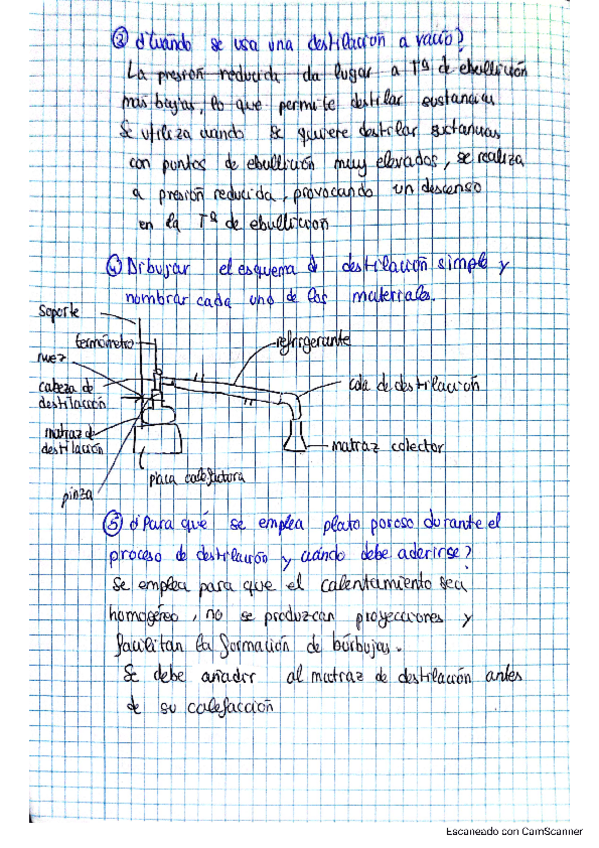 ③ ¿Cuándo se usa una destilación a vacío?
La presión reducida da lugar a Tª de ebullición
más bajas, lo que permite destilar sustancias
Se utiliza cuando se quiere destilar sustancias
con puntos de ebullición muy elevados, se realiza
a presión reducida, provocando un descenso
en la Tª de ebullición
④ Dibujar el esquema de destilación simple y
nombrar cada uno de los materiales.
soporte
termómetro
refrigerante
nuez
cabeza de
destilación
cola de destilación
matraz de
destilación
matraz colector
placa calefactora
pinza
⑤ ¿Para qué se emplea plato poroso durante el
proceso de destilación y cuándo debe aderirse?
Se emplea para que el calentamiento sea
homogéreo, no se produzcan proyecciones y
facilitan la formación de burbujas.
Se debe añadir al matraz de destilación antes
de su calefacción
Escaneado con CamScanner